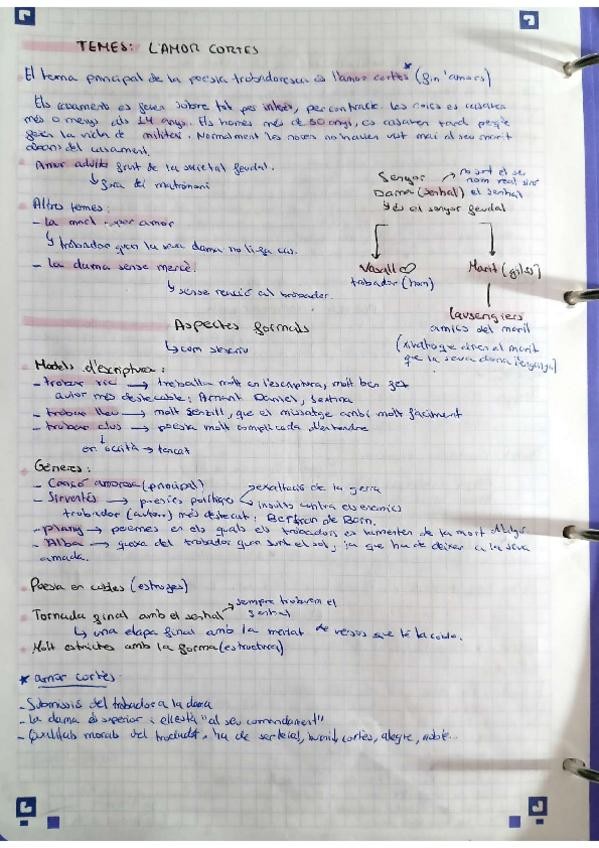 TEMES: L'AMOR CORTES
El tema principal de la poesia trobadoresca és l'amor cortès* (fin'amors)
Els casaments es feien sobre tot per interès, per contracte. Les noies es casaven
més o menys als 14 anys. Els homes més de 30 anys, es casaven tard perquè
feien la vida de militar. Normalment les noies no havien vist mai al seu marit
abans del casament.
Amor adúlter fruit de la societat feudal.
↳ fora del matrimoni
Altres temes:
- la mort per amor
↳ trobador quan la seva dama no li fa cas.
- la dama sense mercè:
↳ sense reacció al trobador.
Senyor → no surt el seu nom real sinó
Dama (senhal) el senhal
↳ és el senyor feudal
Vasall ♡
trobador (hom)
Marit (gilós)
lausengiers
amics del marit
(xivato que diuen al marit
que la seva dama l'enganya)
Aspectes formals
↳ com s'escriu
Models d'escriptura:
- trobar ric → treballa molt en l'escriptura, molt ben fet
autor més destacable: Arnaut Daniel, sextina
- trobar lleu → molt senzill, que el missatge arribi molt fàcilment
- trobar clus → poesia molt complicada d'entendre
↓
en occità → tancat
Gèneres:
- Cançó amorosa (principal)
- Sirventès → poesies polítiques
exaltació de la guerra
insults contra els enemics
trobador (autor) més destacat: Bertran de Born.
- plany → poemes en els quals els trobadors es lamenten de la mort d'algú
- Alba → queixa del trobador quan surt el sol, ja que ha de deixar a la seva
amada.
Poesia en cobles (estrofes)
Tornada final amb el senhal → sempre trobarem el senhal
↳ una etapa final amb la meitat de versos que té la cobla.
Molt estrictes amb la forma (estructura)
* amor cortès:
- Submissió del trobador a la dama
- La dama és superior i ell està "al seu comandament"
- Qualitats morals del trobador, ha de ser lleial, humil, cortès, alegre, noble...